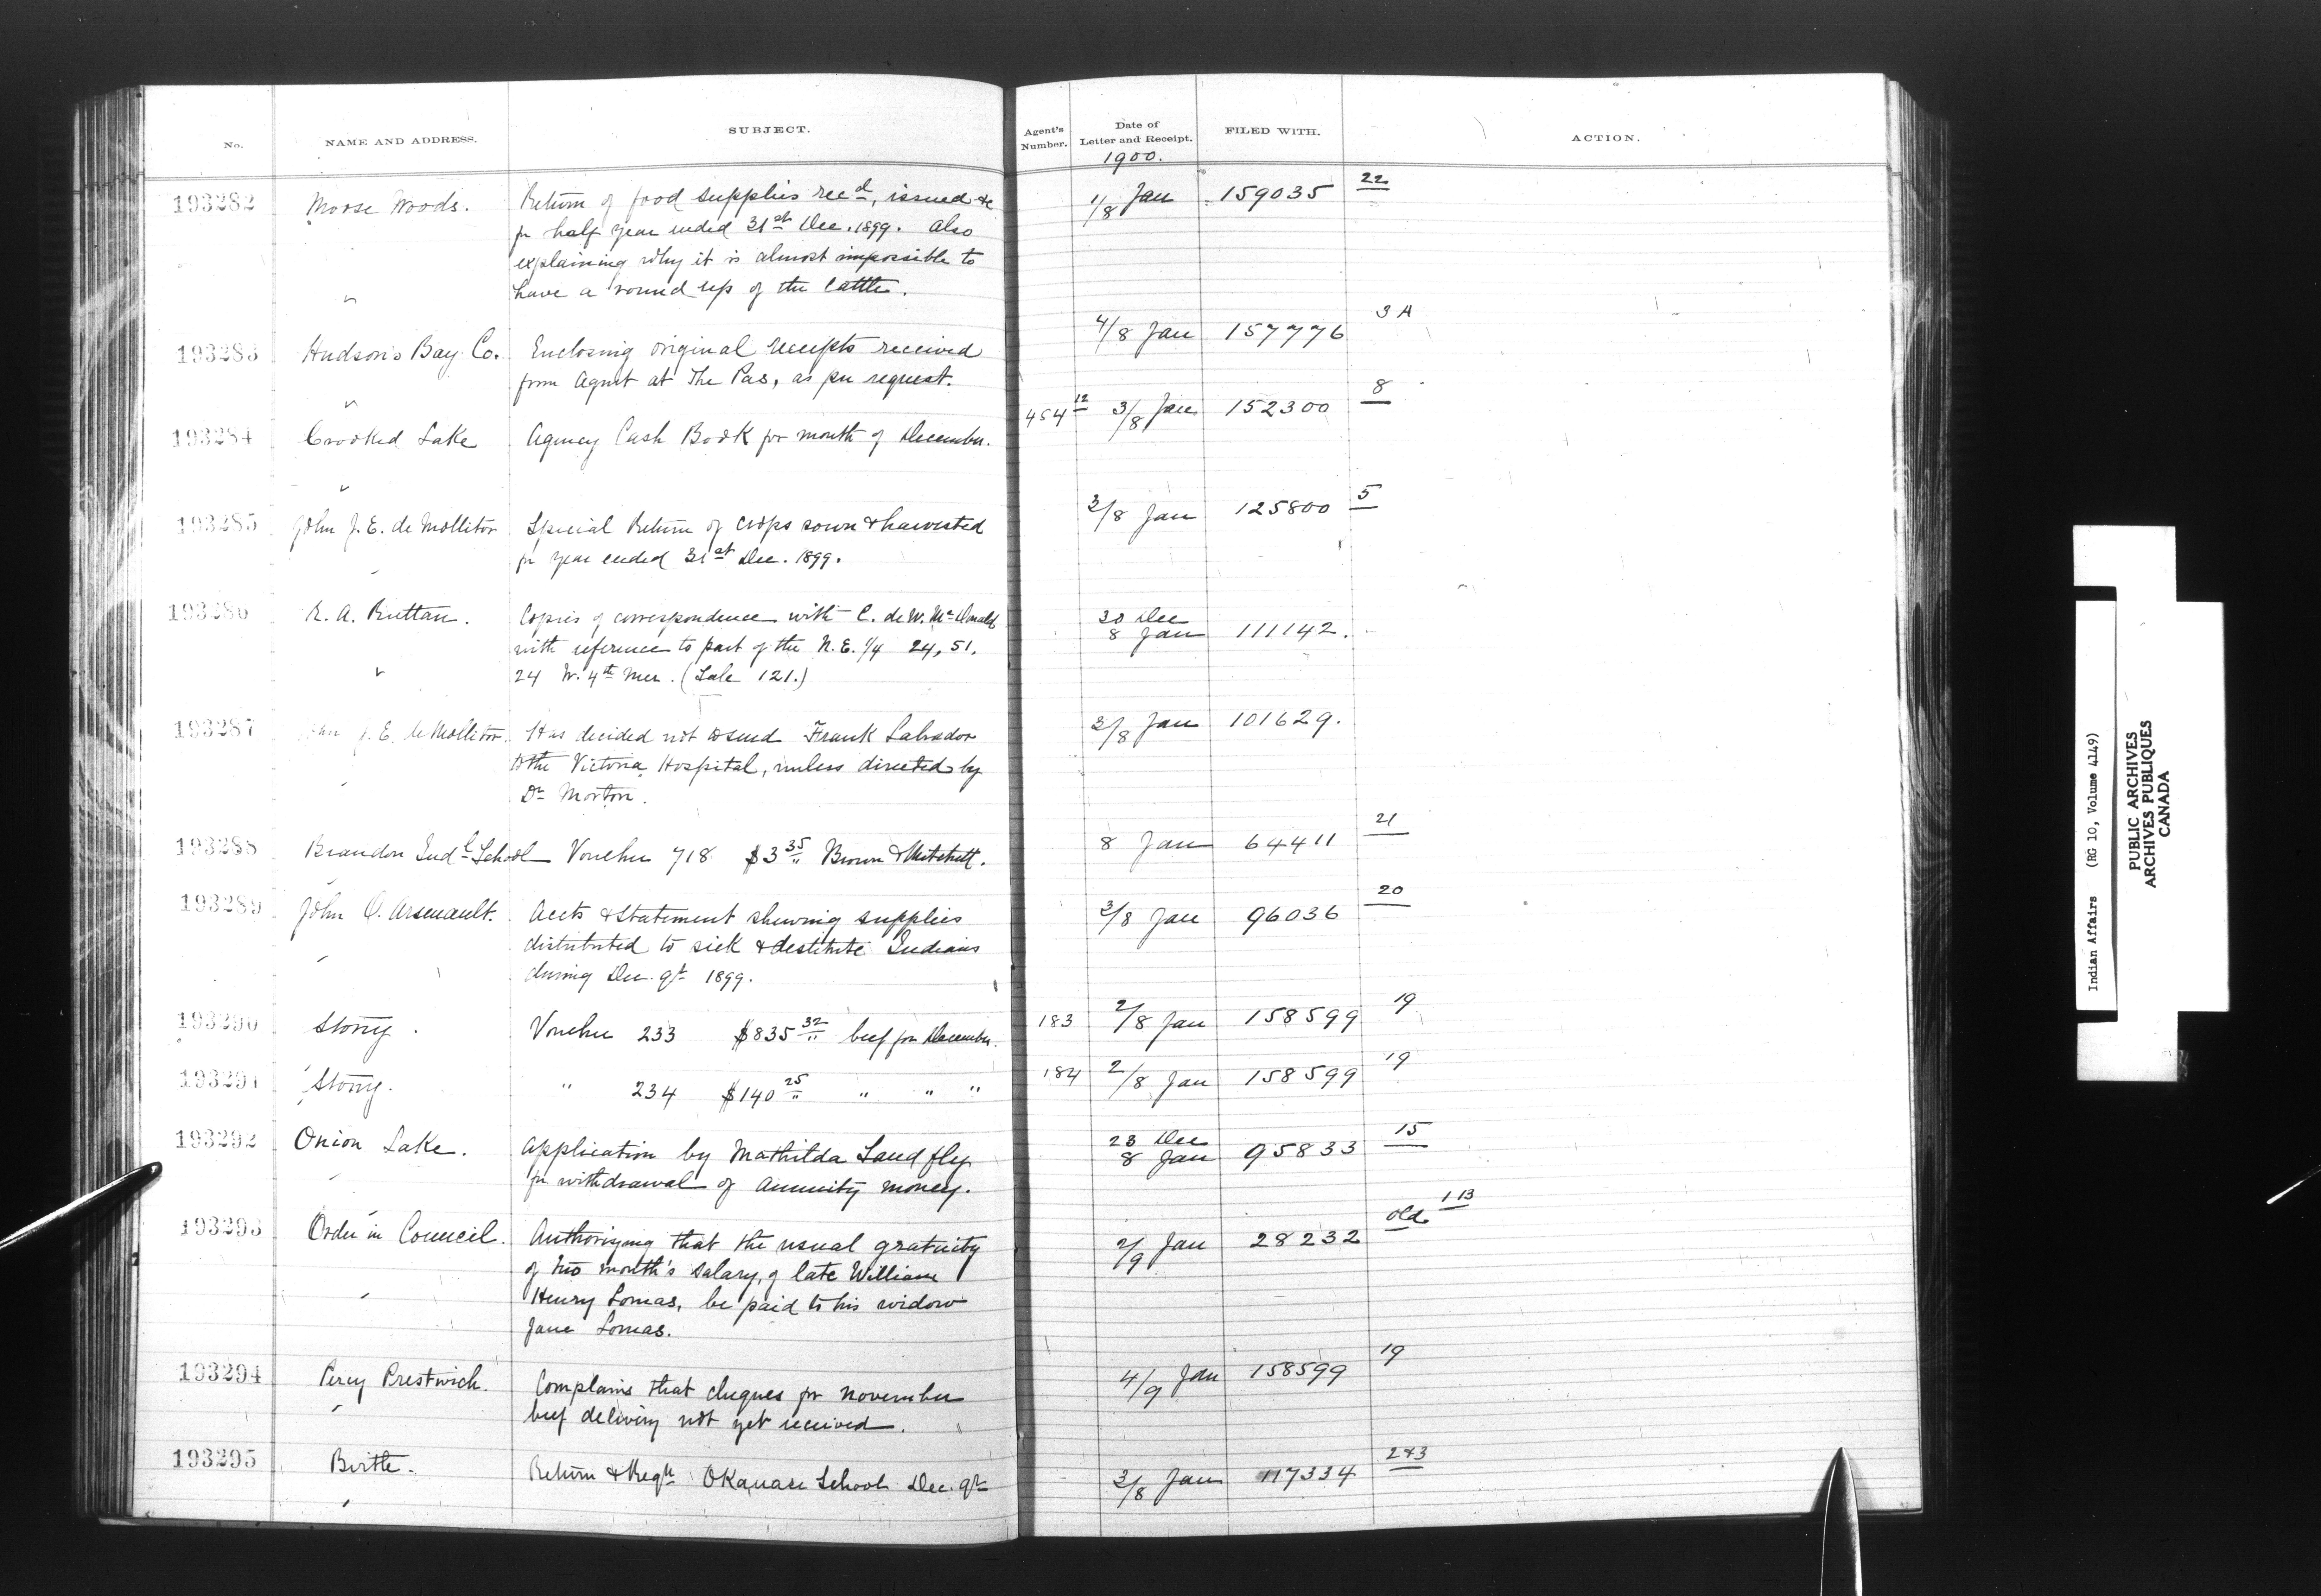 No.
NAME AND ADDRESS.
SUBJECT.
Agent's Number.
Date of Letter and Receipt.
FILED WITH.
ACTION.
1900.
193282 Moose Woods. Return of food supplies recd, issued &c 1/8 Jan 159035 22
for half year ended 31st Dec. 1899. Also
explaining why it is almost impossible to
have a round up of the cattle.
193283 Hudson's Bay Co. Enclosing original receipts received 4/8 Jan 157776 3A
from Agent at The Pas, as per request.
193284 Crooked Lake Agency Cash Book for month of December. 454 12 3/8 Jan 152300 8
193285 John J. E. de Mollitor Special Return of crops sown & harvested 3/8 Jan 125800 5
for year ended 31st Dec. 1899.
193286 R. A. Ruttan. Copies of correspondence with C. de W. McDonald 30 Dec 8 Jan 111142.
with reference to part of the N.E. 1/4 24, 51,
24 W. 4th Mer. (Sale 121.)
193287 J. E. de Mollitor. Has decided not to send Frank Labrador 3/8 Jan 101629.
to the Victoria Hospital, unless directed by
Dr Morton.
193288 Brandon Indl School Voucher 718 $3 35 Brown & Mitchell. 8 Jan 64411 21
193289 John O. Arsenault. Accts & Statement shewing supplies 3/8 Jan 96036 20
distributed to sick & destitute Indians
during Dec. qr 1899.
193290 Stony. Voucher 233 $835 32 beef for December. 183 2/8 Jan 158599 19
193291 Stony. " 234 $140 25 " " " 184 2/8 Jan 158599 19
193292 Onion Lake. Application by Mathilda Sandfly 23 Dec 8 Jan 95833 15
for withdrawal of annuity money.
193293 Order in Council. Authorizing that the usual gratuity 2/9 Jan 28232 old 113
of two month's salary, of late William
Henry Lomas, be paid to his widow
Jane Lomas.
193294 Percy Prestwich. Complains that cheques for November 4/9 Jan 158599 19
beef delivery not yet received.
193295 Birtle. Return & Reqn Okanase School Dec. qr 3/8 Jan 117334 2&3
Indian Affairs (RG 10, Volume 4149)
PUBLIC ARCHIVES
ARCHIVES PUBLIQUES
CANADA